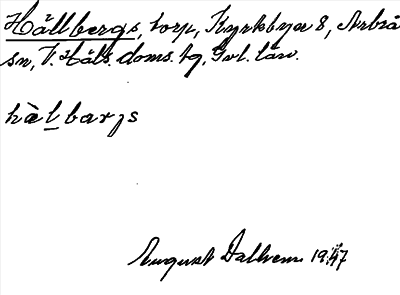 Hållbergs, torp, Kyrkbyn 8, Arbrå
sn, V. Häls. doms. tg, Gvl. län.
hàlbarjs
August Dalhem 1947